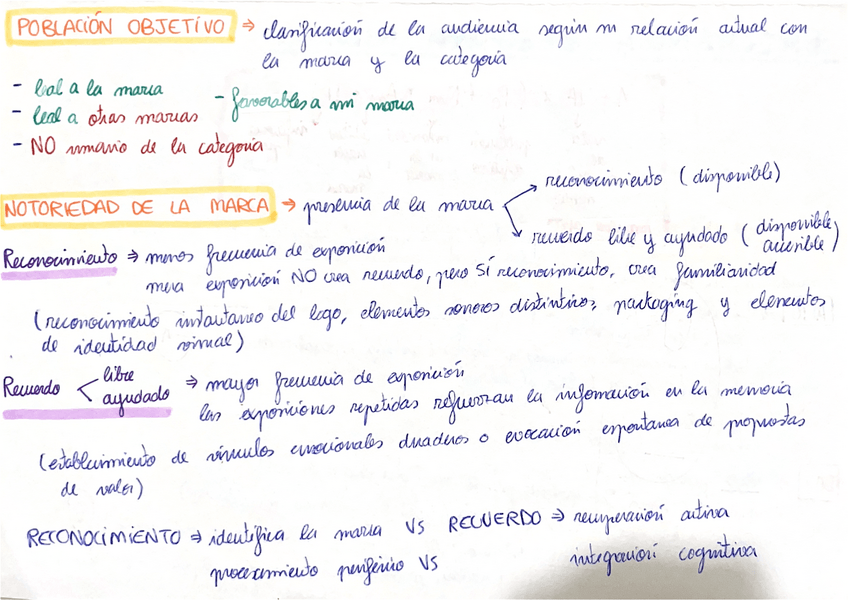 POBLACIÓN OBJETIVO ⇒ clasificación de la audiencia según su relación actual con
la marca y la categoría
- leal a la marca
- leal a otras marcas
- favorables a mi marca
- NO usuario de la categoría
NOTORIEDAD DE LA MARCA → presencia de la marca
reconocimiento (disponible)
recuerdo libre y ayudado (disponible, accesible)
Reconocimiento ⇒ menos frecuencia de exposición
mera exposición NO crea recuerdo, pero SÍ reconocimiento, crea familiaridad
(reconocimiento instantaneo del logo, elementos sonoros distintivos, packaging y elementos
de identidad visual)
Recuerdo libre
ayudado
⇒ mayor frecuencia de exposición
las exposiciones repetidas refuerzan la información en la memoria
(establecimiento de vínculos emocionales duraderos o evocación espontanea de propuestas
de valor)
RECONOCIMIENTO ⇒ identifica la marca VS RECUERDO ⇒ recuperación activa
procesamiento periférico VS integración cognitiva